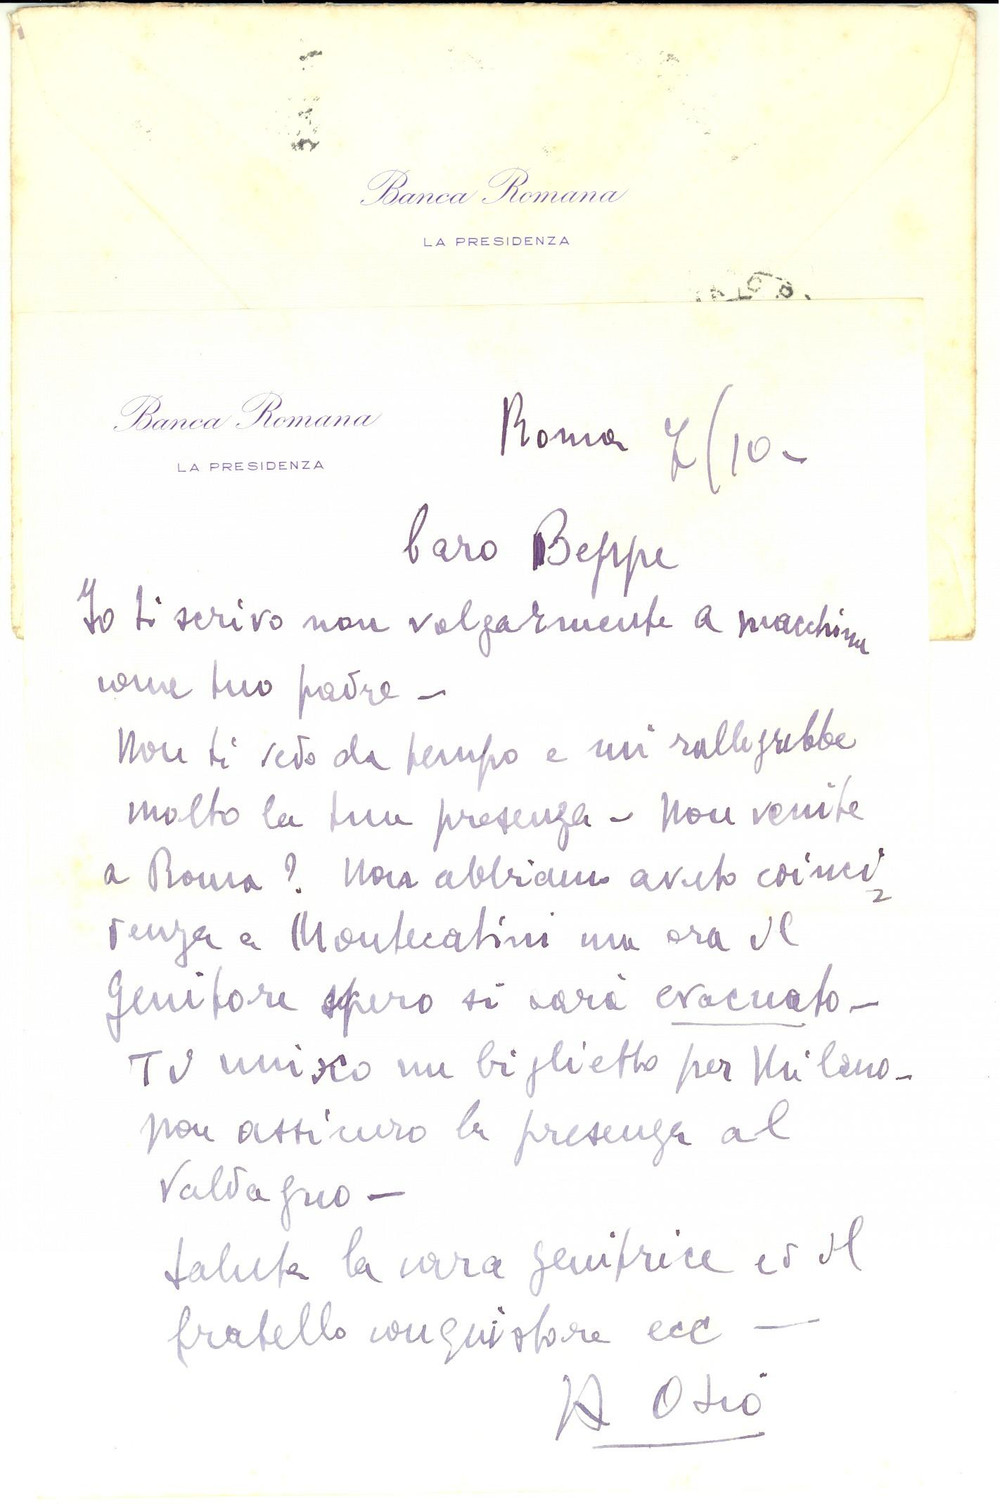 Banca Romana
LA PRESIDENZA
Banca Romana
LA PRESIDENZA
Roma 7/10-
Caro Beppe
Io ti scrivo non volgarmente a macchina
come tuo padre -
Non ti vedo da tempo e mi rallegrebbe
molto la tua presenza - Non venite
a Roma? Non abbiamo avuto coinci
denza a Montecatini ma ora il
genitore spero si sarà evacuato -
Ti unisco un biglietto per Milano -
non assicuro la presenza al
Valdagno -
Saluta la cara genitrice ed il
fratello conquistore ecc -
A Osio